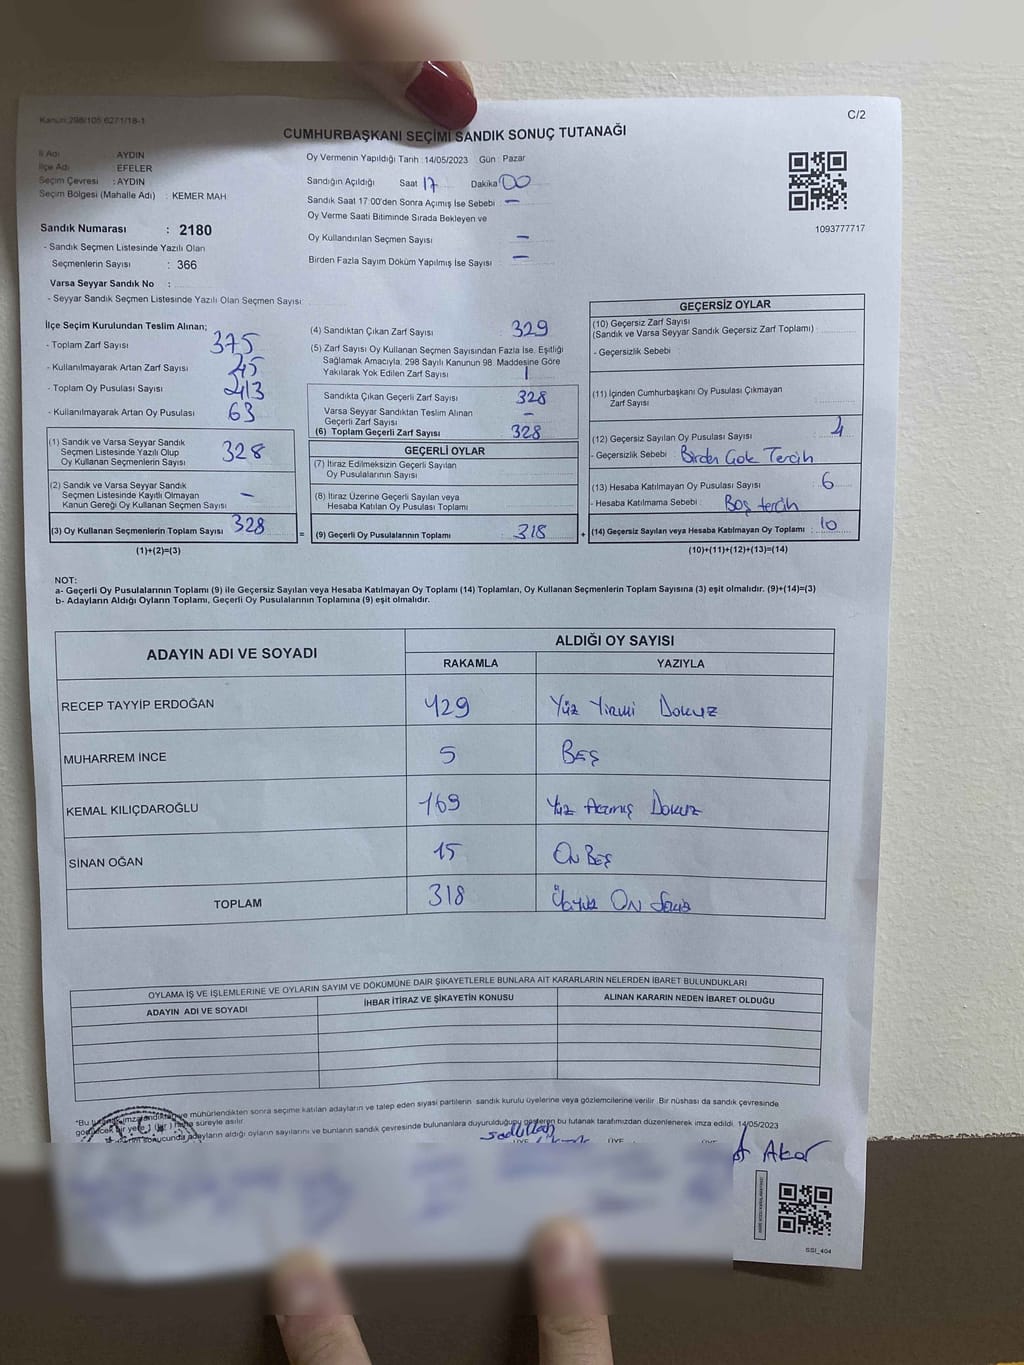 Kanun:298/105 6271/18-1
C/2
CUMHURBAŞKANI SEÇİMİ SANDIK SONUÇ TUTANAĞI
İl Adı : AYDIN
İlçe Adı : EFELER
Seçim Çevresi : AYDIN
Seçim Bölgesi (Mahalle Adı) : KEMER MAH
Sandık Numarası : 2180
- Sandık Seçmen Listesinde Yazılı Olan
Seçmenlerin Sayısı : 366
Varsa Seyyar Sandık No :
- Seyyar Sandık Seçmen Listesinde Yazılı Olan Seçmen Sayısı:
Oy Vermenin Yapıldığı Tarih :14/05/2023 Gün : Pazar
Sandığın Açıldığı Saat 17 Dakika 00
Sandık Saat 17:00'den Sonra Açımış İse Sebebi : —
Oy Verme Saati Bitiminde Sırada Bekleyen ve
Oy Kullandırılan Seçmen Sayısı : —
Birden Fazla Sayım Döküm Yapılmış İse Sayısı : —
1093777717
İlçe Seçim Kurulundan Teslim Alınan;
- Toplam Zarf Sayısı : 375
- Kullanılmayarak Artan Zarf Sayısı : 45
- Toplam Oy Pusulası Sayısı : 413
- Kullanılmayarak Artan Oy Pusulası : 63
(1) Sandık ve Varsa Seyyar Sandık
Seçmen Listesinde Yazılı Olup
Oy Kullanan Seçmenlerin Sayısı : 328
(2) Sandık ve Varsa Seyyar Sandık
Seçmen Listesinde Kayıtlı Olmayan
Kanun Gereği Oy Kullanan Seçmen Sayısı : —
(3) Oy Kullanan Seçmenlerin Toplam Sayısı : 328
(1)+(2)=(3)
=
(4) Sandıktan Çıkan Zarf Sayısı : 329
(5) Zarf Sayısı Oy Kullanan Seçmen Sayısından Fazla İse, Eşitliği
Sağlamak Amacıyla, 298 Sayılı Kanunun 98. Maddesine Göre
Yakılarak Yok Edilen Zarf Sayısı : 1
Sandıkta Çıkan Geçerli Zarf Sayısı : 328
Varsa Seyyar Sandıktan Teslim Alınan
Geçerli Zarf Sayısı : —
(6) Toplam Geçerli Zarf Sayısı : 328
GEÇERLİ OYLAR
(7) İtiraz Edilmeksizin Geçerli Sayılan
Oy Pusulalarının Sayısı :
(8) İtiraz Üzerine Geçerli Sayılan veya
Hesaba Katılan Oy Pusulası Toplamı :
(9) Geçerli Oy Pusulalarının Toplamı : 318
+
GEÇERSİZ OYLAR
(10) Geçersiz Zarf Sayısı
(Sandık ve Varsa Seyyar Sandık Geçersiz Zarf Toplamı) :
- Geçersizlik Sebebi :
(11) İçinden Cumhurbaşkanı Oy Pusulası Çıkmayan
Zarf Sayısı :
(12) Geçersiz Sayılan Oy Pusulası Sayısı : 4
- Geçersizlik Sebebi : Birden Çok Tercih
(13) Hesaba Katılmayan Oy Pusulası Sayısı : 6
- Hesaba Katılmama Sebebi : Boş tercih
(14) Geçersiz Sayılan veya Hesaba Katılmayan Oy Toplamı : 10
(10)+(11)+(12)+(13)=(14)
NOT:
a- Geçerli Oy Pusulalarının Toplamı (9) ile Geçersiz Sayılan veya Hesaba Katılmayan Oy Toplamı (14) Toplamları, Oy Kullanan Seçmenlerin Toplam Sayısına (3) eşit olmalıdır. (9)+(14)=(3)
b- Adayların Aldığı Oyların Toplamı, Geçerli Oy Pusulalarının Toplamına (9) eşit olmalıdır.
ADAYIN ADI VE SOYADI
ALDIĞI OY SAYISI
RAKAMLA YAZIYLA
RECEP TAYYİP ERDOĞAN 129 Yüz Yirmi Dokuz
MUHARREM İNCE 5 BEŞ
KEMAL KILIÇDAROĞLU 169 Yüz Atmış Dokuz
SİNAN OĞAN 15 ON BEŞ
TOPLAM 318 Üçyüz ON Sekiz
OYLAMA İŞ VE İŞLEMLERİNE VE OYLARIN SAYIM VE DÖKÜMÜNE DAİR ŞİKAYETLERLE BUNLARA AİT KARARLARIN NELERDEN İBARET BULUNDUKLARI
ADAYIN ADI VE SOYADI İHBAR İTİRAZ VE ŞİKAYETİN KONUSU ALINAN KARARIN NEDEN İBARET OLDUĞU
mühürlendikten sonra seçime katılan adayların ve talep eden siyasi partilerin sandık kurulu üyelerine veya gözlemcilerine verilir. Bir nüshası da sandık çevresinde
süreyle asılır.
sonucunda adayların aldığı oyların sayılarını ve bunların sandık çevresinde bulunanlara duyurulduğunu gösteren bu tutanak tarafımızdan düzenlenerek imza edildi. 14/05/2023
Sadullah
A Akar
SSI_404